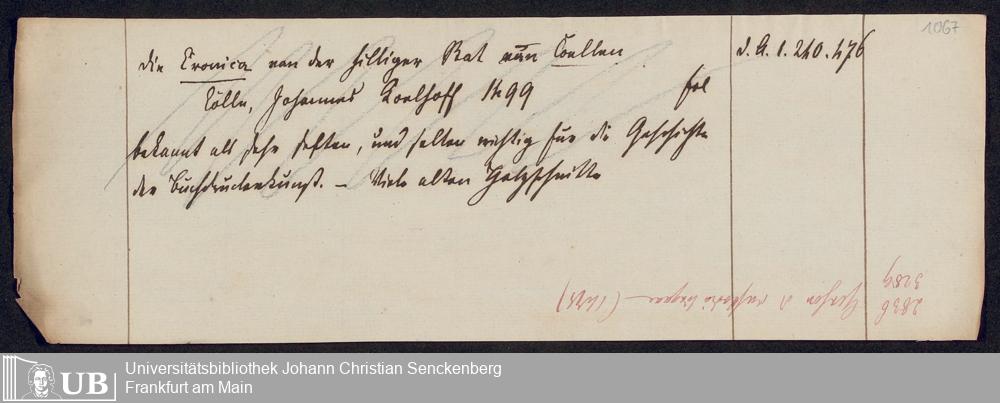 1067
die Cronica van der hilliger Stat van Coellen
d. A. 1. 240. 476
Cölln, Johannes Koelhoff 1499 fol
bekannt als sehr selten, und selten wichtig für die Geschichte
der Buchdruckerkunst. – Viele alten Holzschnitte
3289
2836
UB
Universitätsbibliothek Johann Christian Senckenberg
Frankfurt am Main